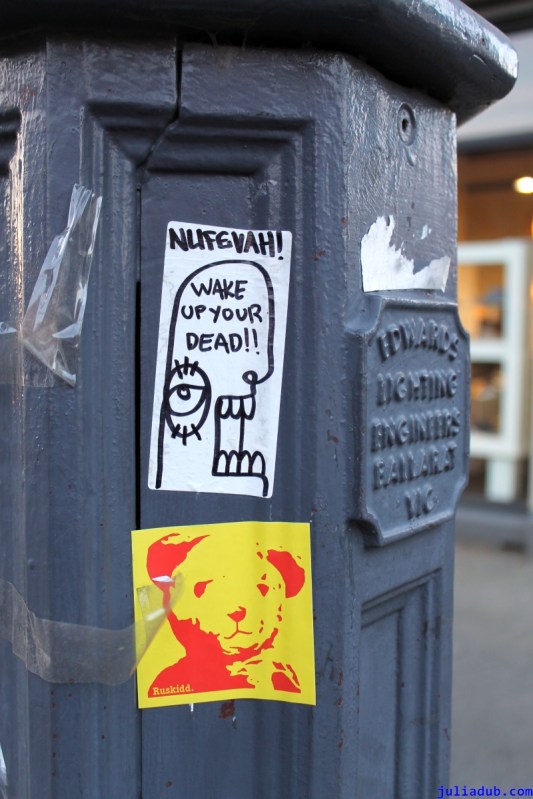 NUFEVAH!
WAKE
UP YOUR
DEAD!!
EDWARDS
LIGHTING
ENGINEERS
BALLARAT
VIC
Ruskidd.
juliadub.com